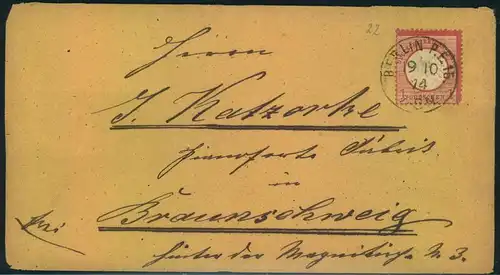 22
BERLIN P.E. 15
19 10
74
Herrn
J. Katzorke
Pianoforte Fabrik
in
Braunschweig
frei
hinter der Magnikirche N 3.